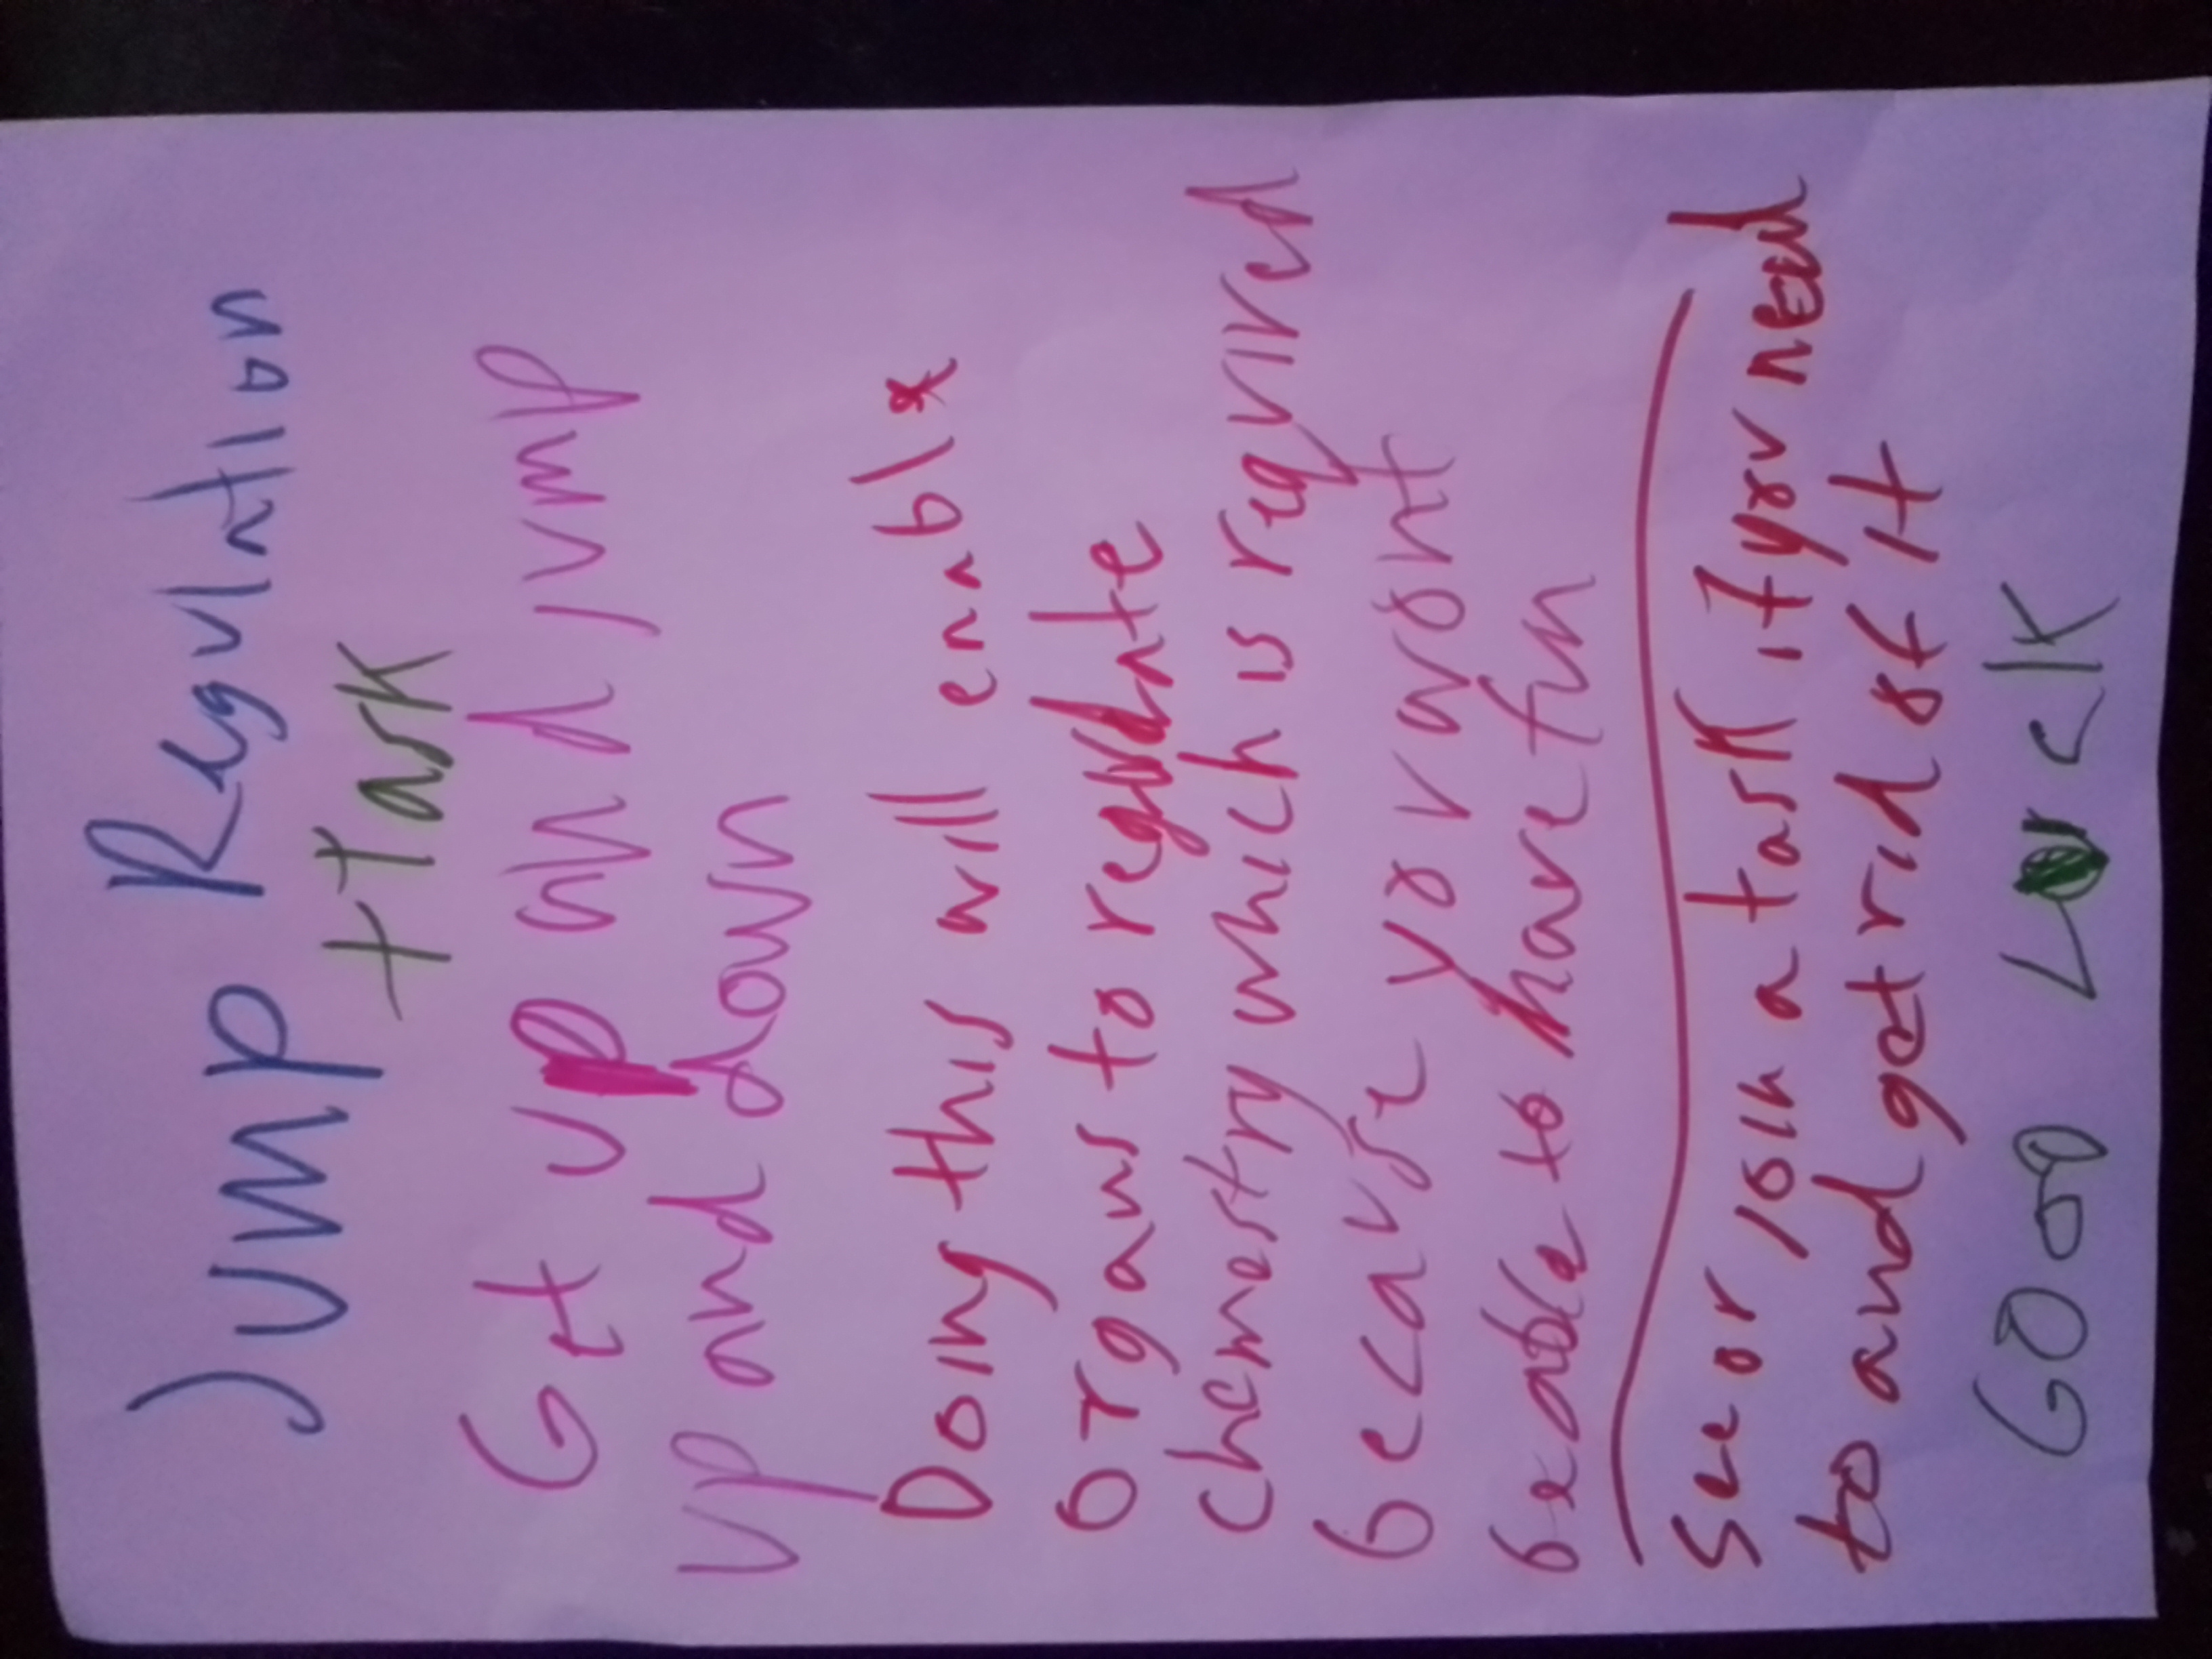 Jump Regulation
+ Task
Get up and jump
up and down
Doing this will enable
organs to regulate
chemestry which is required
because you won't
be able to have fun
See or join a task if you need
to and get rid of it
Good Luck